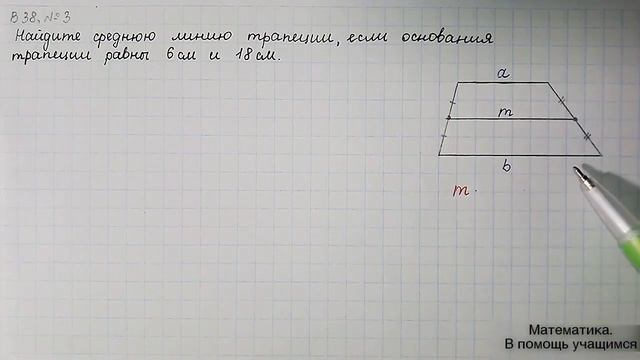 В 38. №3
Найдите среднюю линию трапеции, если основания
трапеции равны 6 см и 18 см.
a
m
b
m
Математика.
В помощь учащимся